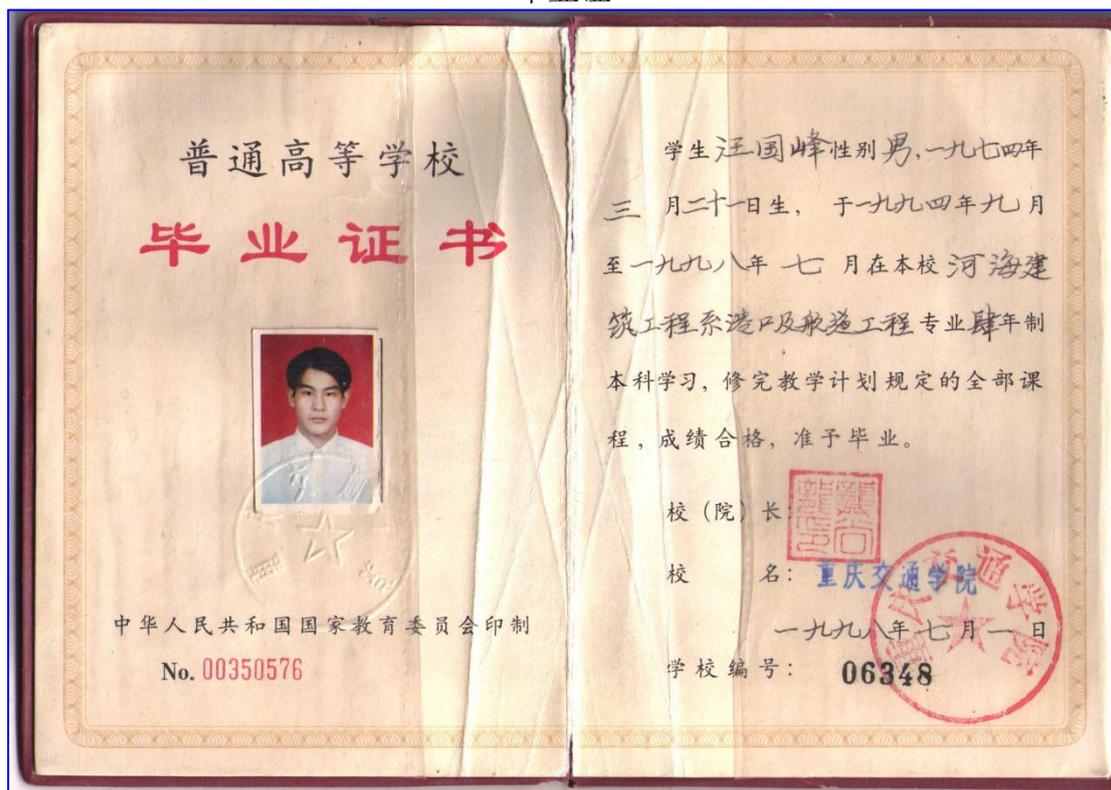 普通高等学校
毕业证书
中华人民共和国国家教育委员会印制
No. 00350576
学生汪国峰性别男,一九七四年
三月二十一日生, 于一九九四年九月
至一九九八年七月在本校河海建
筑工程系港口及航道工程专业肆年制
本科学习,修完教学计划规定的全部课
程,成绩合格,准予毕业。
校(院)长:
校 名:重庆交通学院
一九九八年七月一日
学校编号: 06348
重庆交通学院